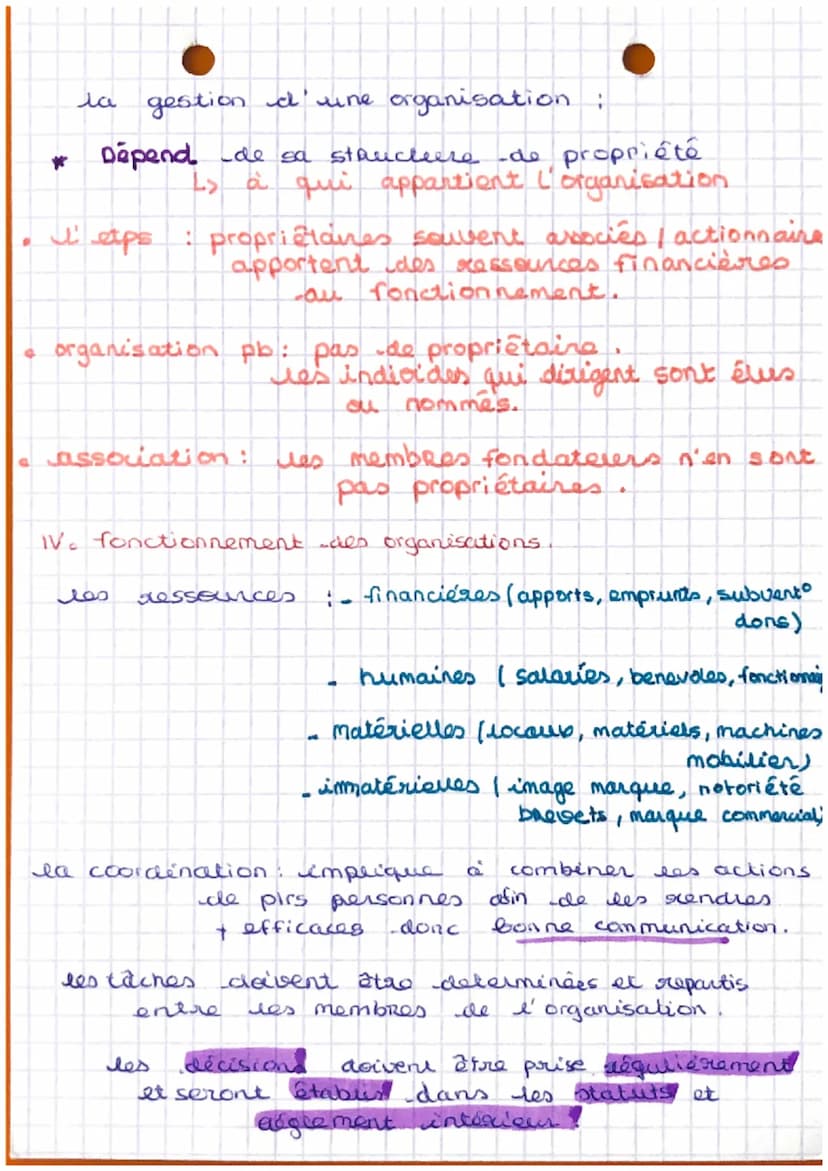 la gestion d'une organisation :
* Dépend de sa structure de propriété
↳ à qui appartient l'organisation
• l'etps : propriétaires souvent associés / actionnaire
apportent des ressources financières
au fonctionnement.
• organisation pb : pas de propriétaire.
les individes qui dirigent sont élus
ou nommés.
• association : les membres fondateurs n'en sont
pas propriétaires.
IV. fonctionnement des organisations.
les ressources : - financières (apports, emprunts, subvent°
dons)
- humaines ( salariés, benevoles, fonctionnai
- matérielles (locaux, matériels, machines
mobilier)
- immatérielles ( image marque, notoriété
brevets, marque commercial,
la coordination : implique à combiner les actions
de plrs personnes afin de les rendres
+ efficaces donc bonne communication.
les tâches doivent être determinées et repartis
entre les membres de l'organisation.
les décisions doivent être prise régulièrement
et seront établis dans les statuts et
règlement intérieur.